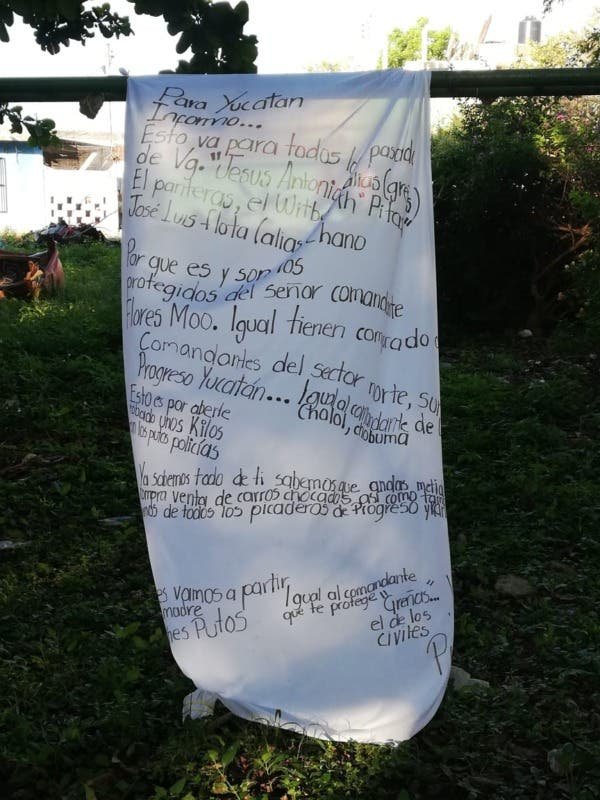 Para Yucatan
Informo...
Esto va para todos l pasada
de Vg. "Jesus Antonio alias (greñas)
El panteras, el Witb h "Pitar"
José Luis flota (alias Chano
Por que es y son los
protegidos del señor comandante
Flores Moo. Igual tienen comprado a
Comandantes del sector norte, sur
Progreso Yucatán... Igual al comandante de
Cholol, chobuma
Esto es por aberle
robado unos Kilos
con los putos policías
Ya sabemos todo de ti sabemos que andas metid
compra venta de carros chocados, así como
de todos los picaderos de Progreso y
es vamos a partir
madre
nes Putos
Igual al comandante
que te protege "Greñas..."
el de los
civiles
P